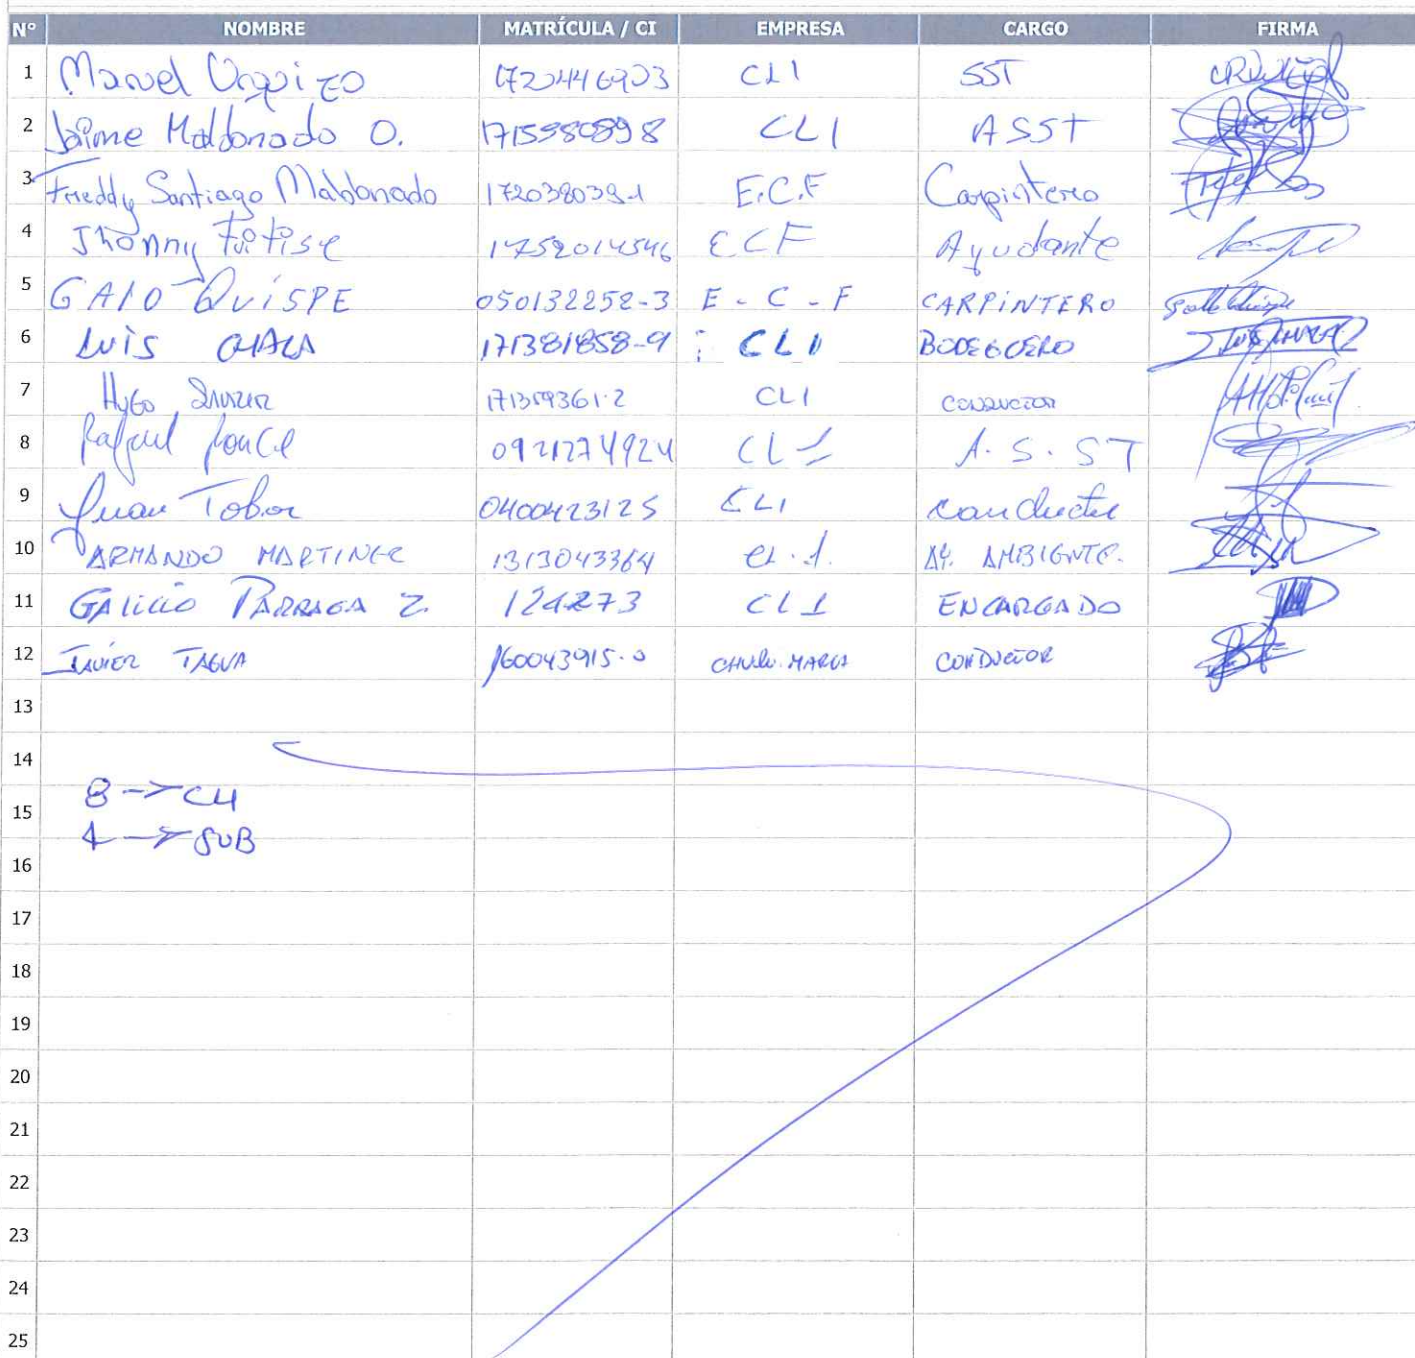 N° NOMBRE MATRÍCULA / CI EMPRESA CARGO FIRMA
1 Manuel Urquizo 1720446903 CLI SST
2 Jaime Maldonado O. CLI ASST
3 Freddy Santiago Maldonado 172038039-1 E.C.F Carpintero
4 Jhonny 1752014546 E.C.F Ayudante
5 GALO QUISPE 050132252-3 E - C - F CARPINTERO
6 LUIS CHALA 171381858-9 CLI BODEGUERO
7 Hugo CLI CONDUCTOR
8 Rafael Ponce 0921274924 CLI A. S. ST
9 Juan Tobar 0400423125 CLI conductor
10 ARMANDO MARTINEZ 1313043364 CL.I. AY. AMBIENTE.
11 GALICIO PARRAGA Z. 124273 CLI ENCARGADO
12 JAVIER TAGUA 160043915-0 CONDUCTOR
13
14
15 8 -> CLI
4 -> SUB
16
17
18
19
20
21
22
23
24
25